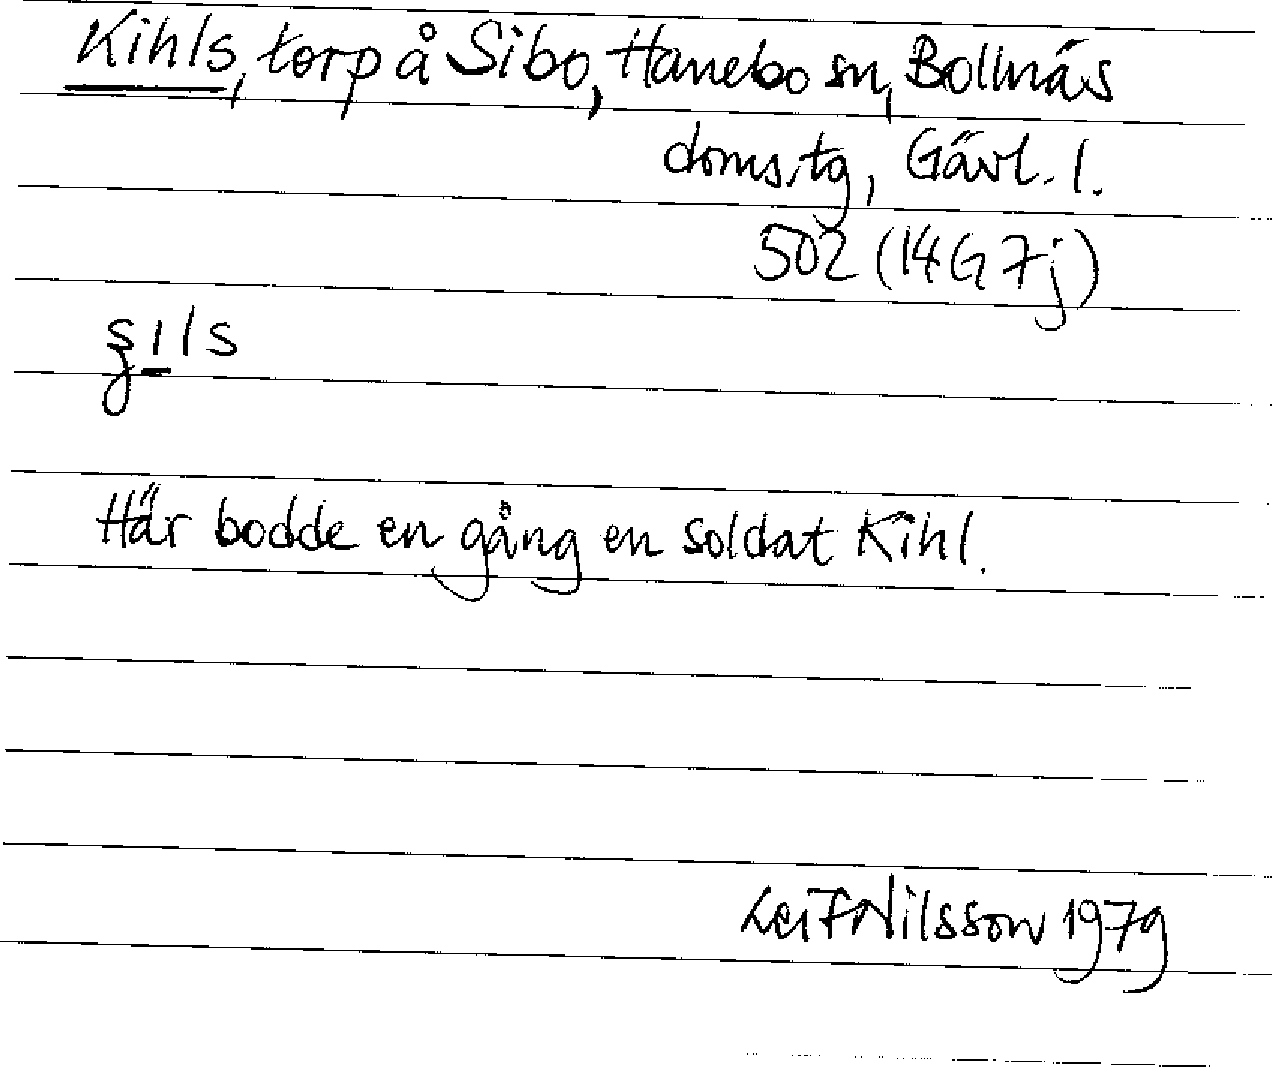 Kihls, torp å Sibo, Hanebo sn, Bollnäs
doms.tg, Gävl. l.
502 (14G 7j)
ʂɩls
Här bodde en gång en soldat Kihl.
Leif Nilsson 1979